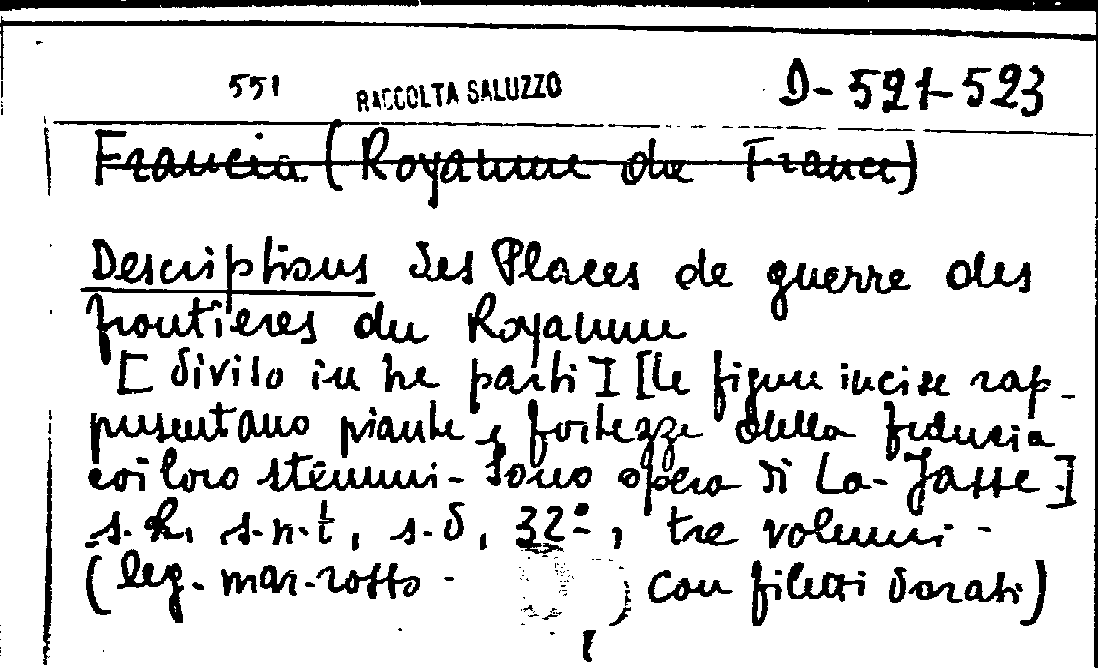 551 RACCOLTA SALUZZO D-521-523
Francia (Royaume de France)
Descriptions des Places de guerre des
frontieres du Royaume
[diviso in tre parti] [le figure incise rap-
presentano piante e fortezze della
coi loro stemmi - Sono opera di La-Jasse.]
s. l., s.n.t, s.d, 32º, tre volumi -
(leg. mar. rosso - ) con filetti dorati)